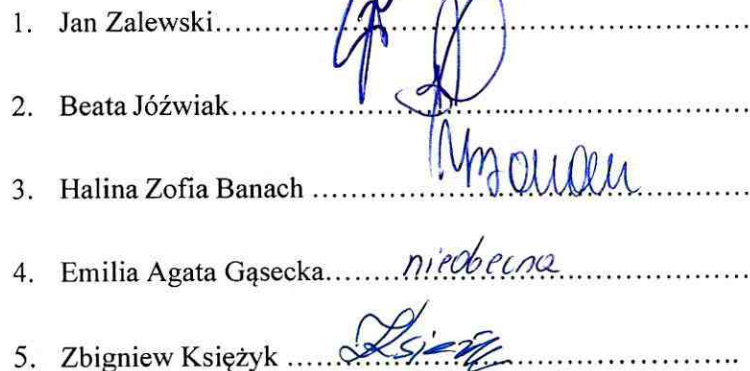 1. Jan Zalewski
2. Beata Jóźwiak
3. Halina Zofia Banach
4. Emilia Agata Gąsecka niedbecna
5. Zbigniew Księżyk